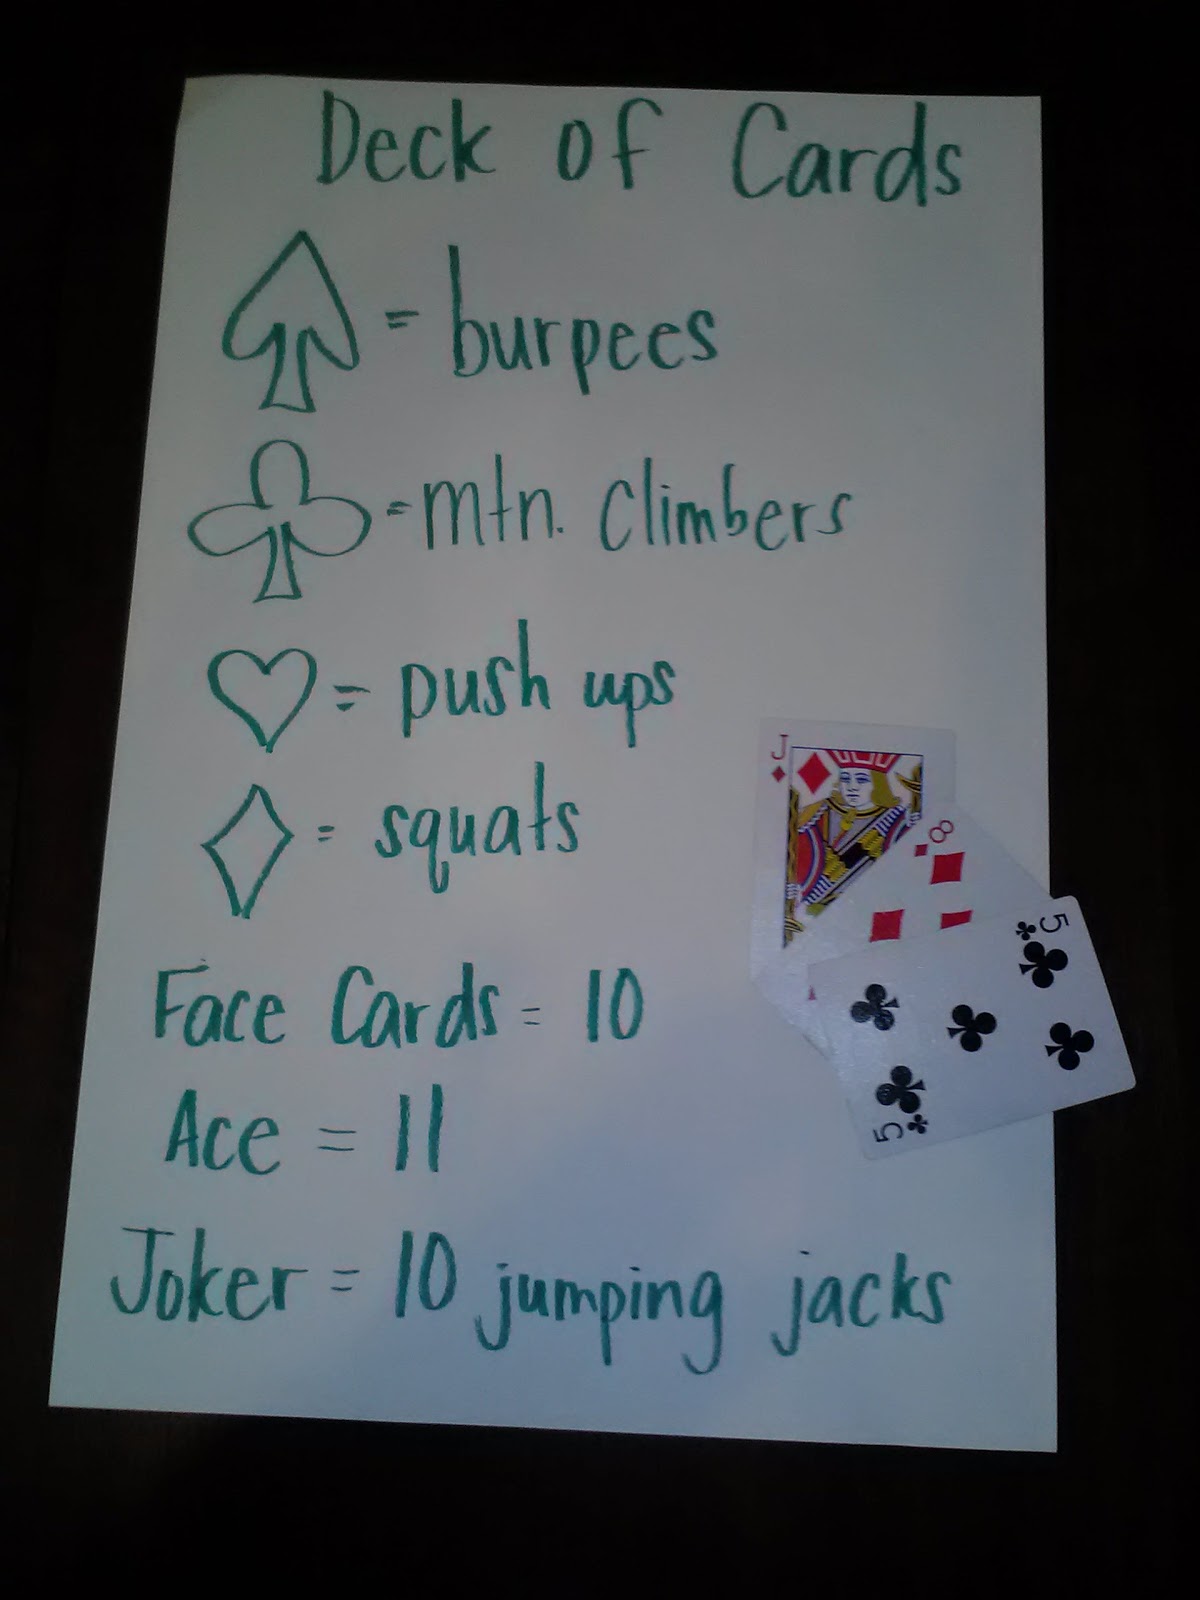 Deck of Cards
= burpees
= mtn. climbers
= push ups
= squats
Face Cards = 10
Ace = 11
Joker = 10 jumping jacks
J
8
5
5